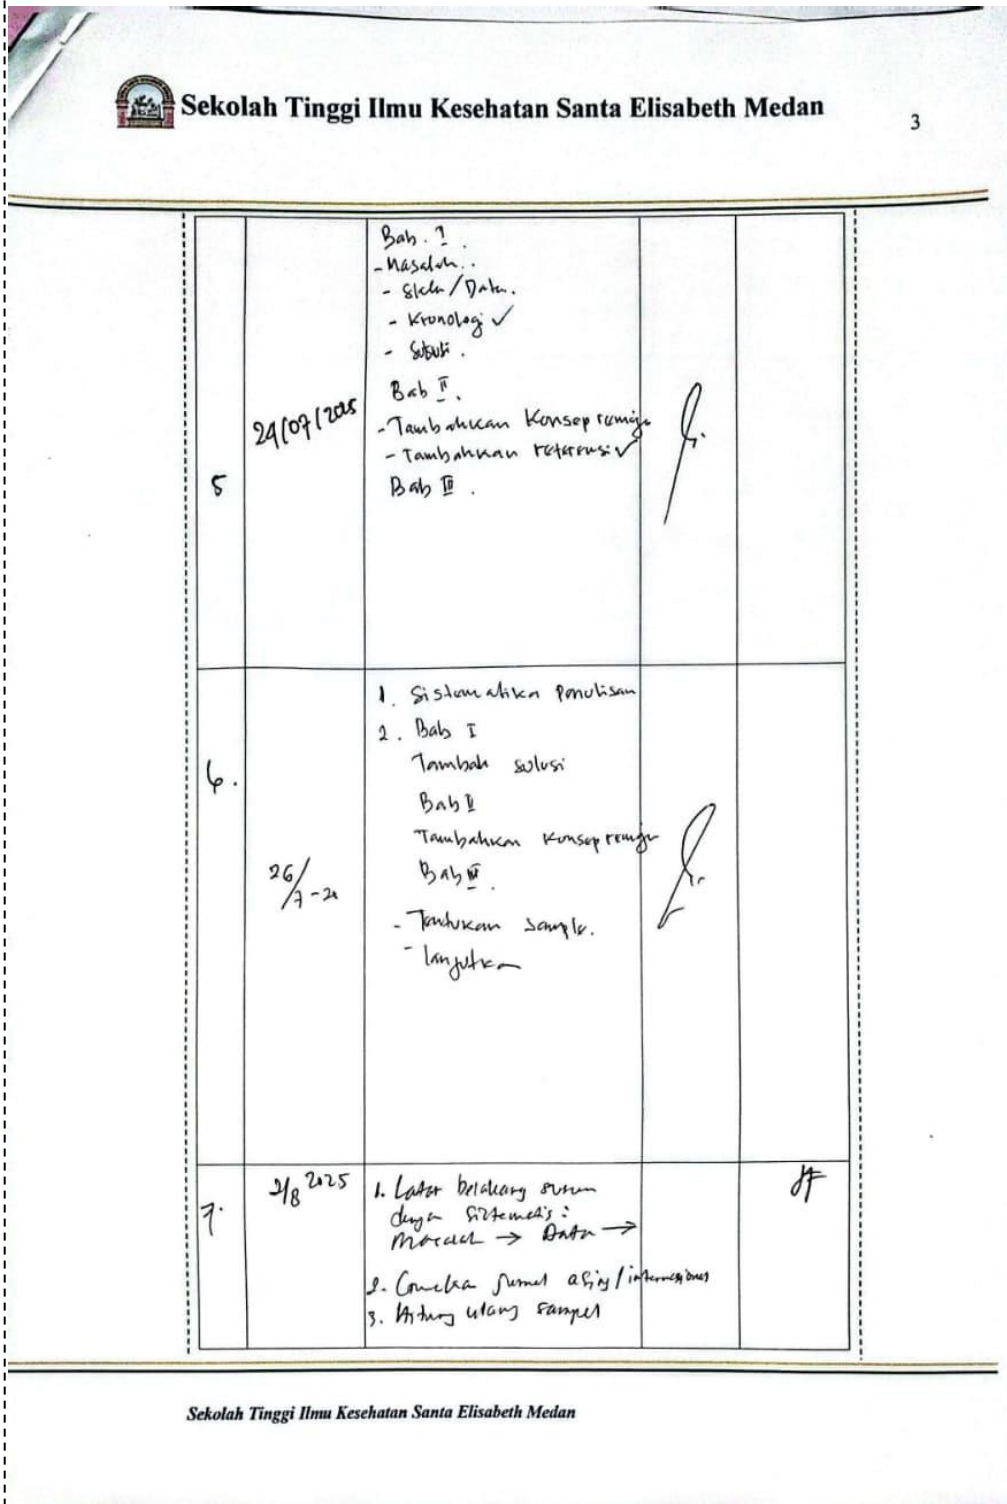 Sekolah Tinggi Ilmu Kesehatan Santa Elisabeth Medan
3
5
24/07/2025
Bab. I.
- Masalah..
- Skala/Data.
- Kronologi ✓
- Solusi.
Bab II.
- Tambahkan Konsep remaja
- Tambahkan referensi ✓
Bab III.
6.
26/7-25
1. Sistematika Penulisan
2. Bab I
Tambah solusi
Bab II
Tambahkan Konsep remaja
Bab III.
- Tentukan Sample.
- lanjutkan
7.
2/8 2025
1. Latar belakang susun
dengan sistematis:
Masalah → Data →
2. jurnal asing/internasional
3. Hitung ulang sampel
Sekolah Tinggi Ilmu Kesehatan Santa Elisabeth Medan